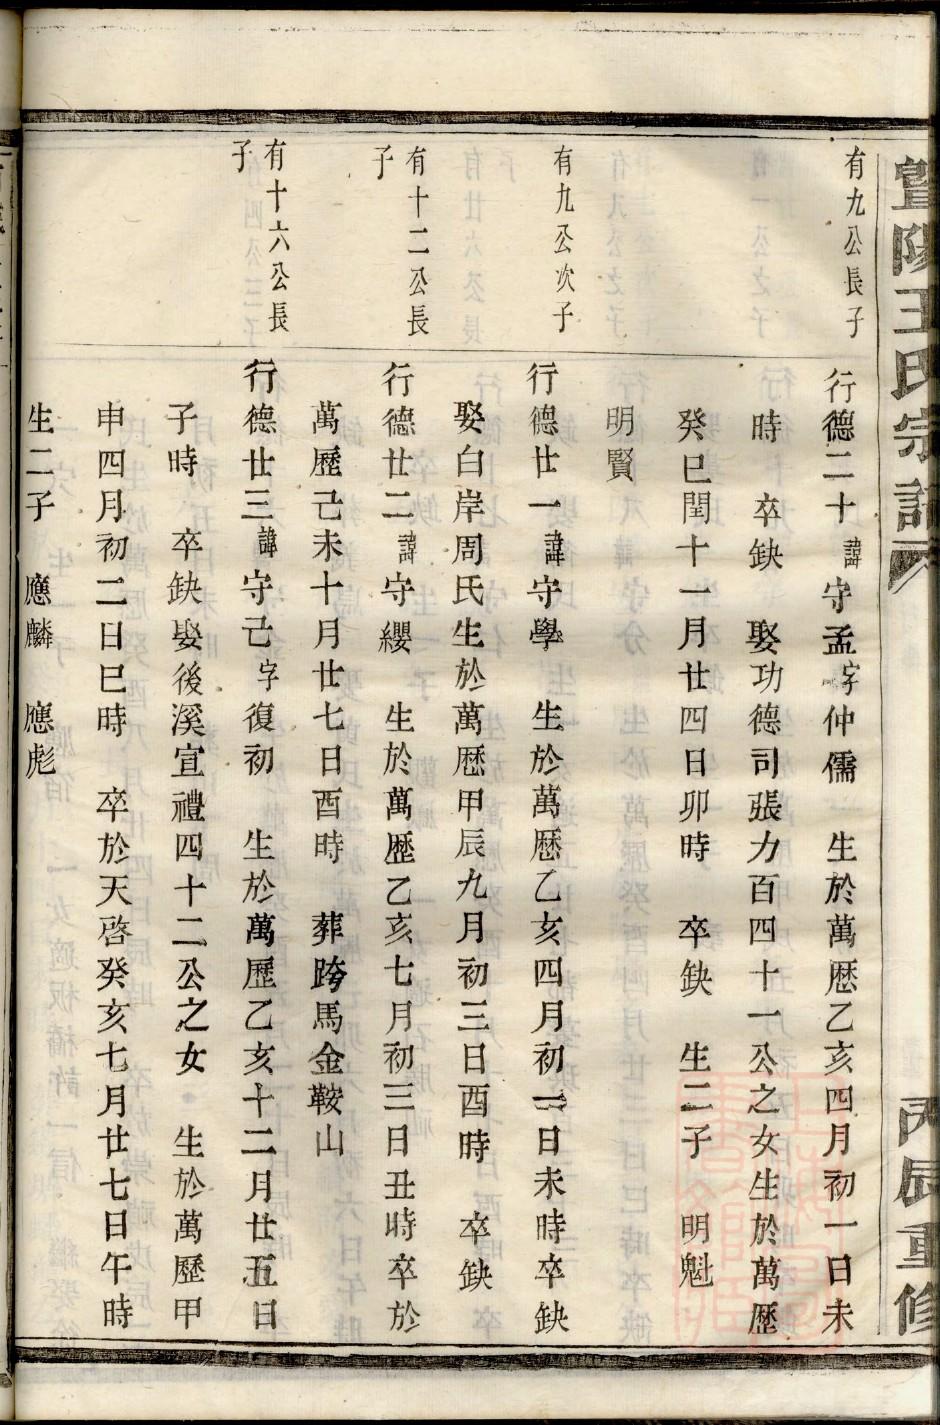 暨陽王氏宗譜
丙辰重修
有九公長子
行德二十諱守孟字仲儒 生於萬歷乙亥四月初一日未
時 卒缺 娶功德司張力百四十一公之女生於萬歷
癸巳閏十一月廿四日卯時 卒缺 生二子 明魁
明賢
有九公次子
行德廿一諱守學 生於萬歷乙亥四月初二日未時卒缺
娶白岸周氏生於萬歷甲辰九月初三日酉時 卒缺
有十二公長
子
行德廿二諱守纓 生於萬歷乙亥七月初三日丑時卒於
萬歷己未十月廿七日酉時 葬跨馬金鞍山
有十六公長
子
行德廿三諱守己字復初 生於萬歷乙亥十二月廿五日
子時 卒缺娶後溪宣禮四十二公之女 生於萬歷甲
申四月初二日巳時 卒於天啓癸亥七月廿七日午時
生二子 應麟 應彪